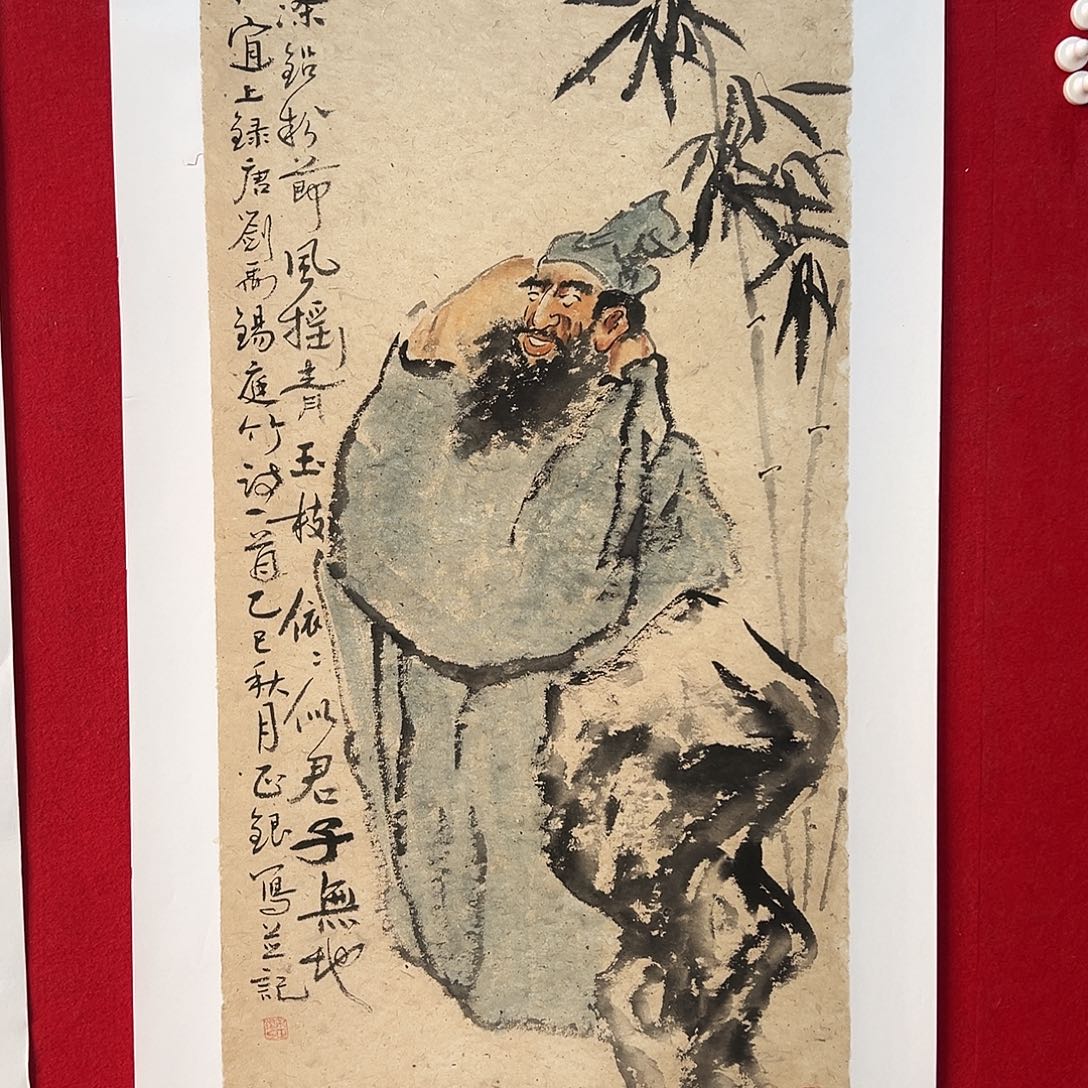 滌鉛粉節風摇青玉枝依〻似君子無地
宜上録唐劉禹錫庭竹詩一首乙巳秋月正銀寫並記